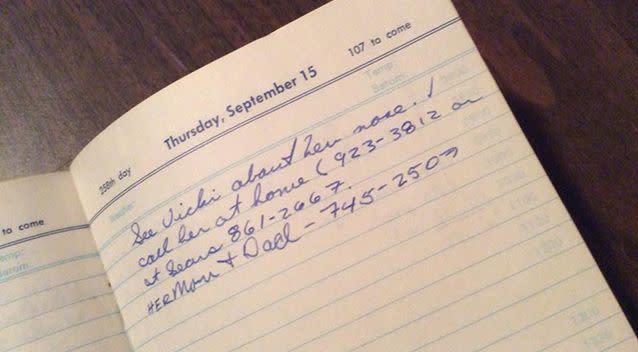 258th day
Thursday, September 15
107 to come
See Vicki about her nose. ✓
call her at home (923-3812 or
at Sears 861-2667.
HER Mom + Dad - 745-2507
to come